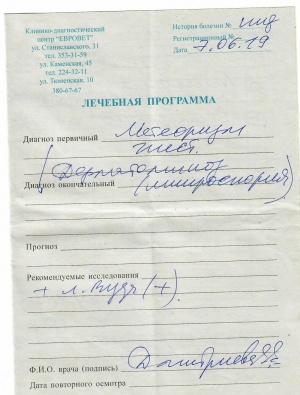 Клинико-диагностический
центр "ЕВРОВЕТ"
ул. Станиславского, 31
тел. 353-31-59
ул. Каменская, 45
тел. 224-32-11
ул. Тюменская, 10
380-67-67
История болезни №
Регистрационный №
Дата 7.06.19
ЛЕЧЕБНАЯ ПРОГРАММА
Диагноз первичный Метеоризм
(Дерматофитоз
Диагноз окончательный (микроспория)
Прогноз
Рекомендуемые исследования
+ л. Вуда (+)
Ф.И.О. врача (подпись) Дмитриева
Дата повторного осмотра